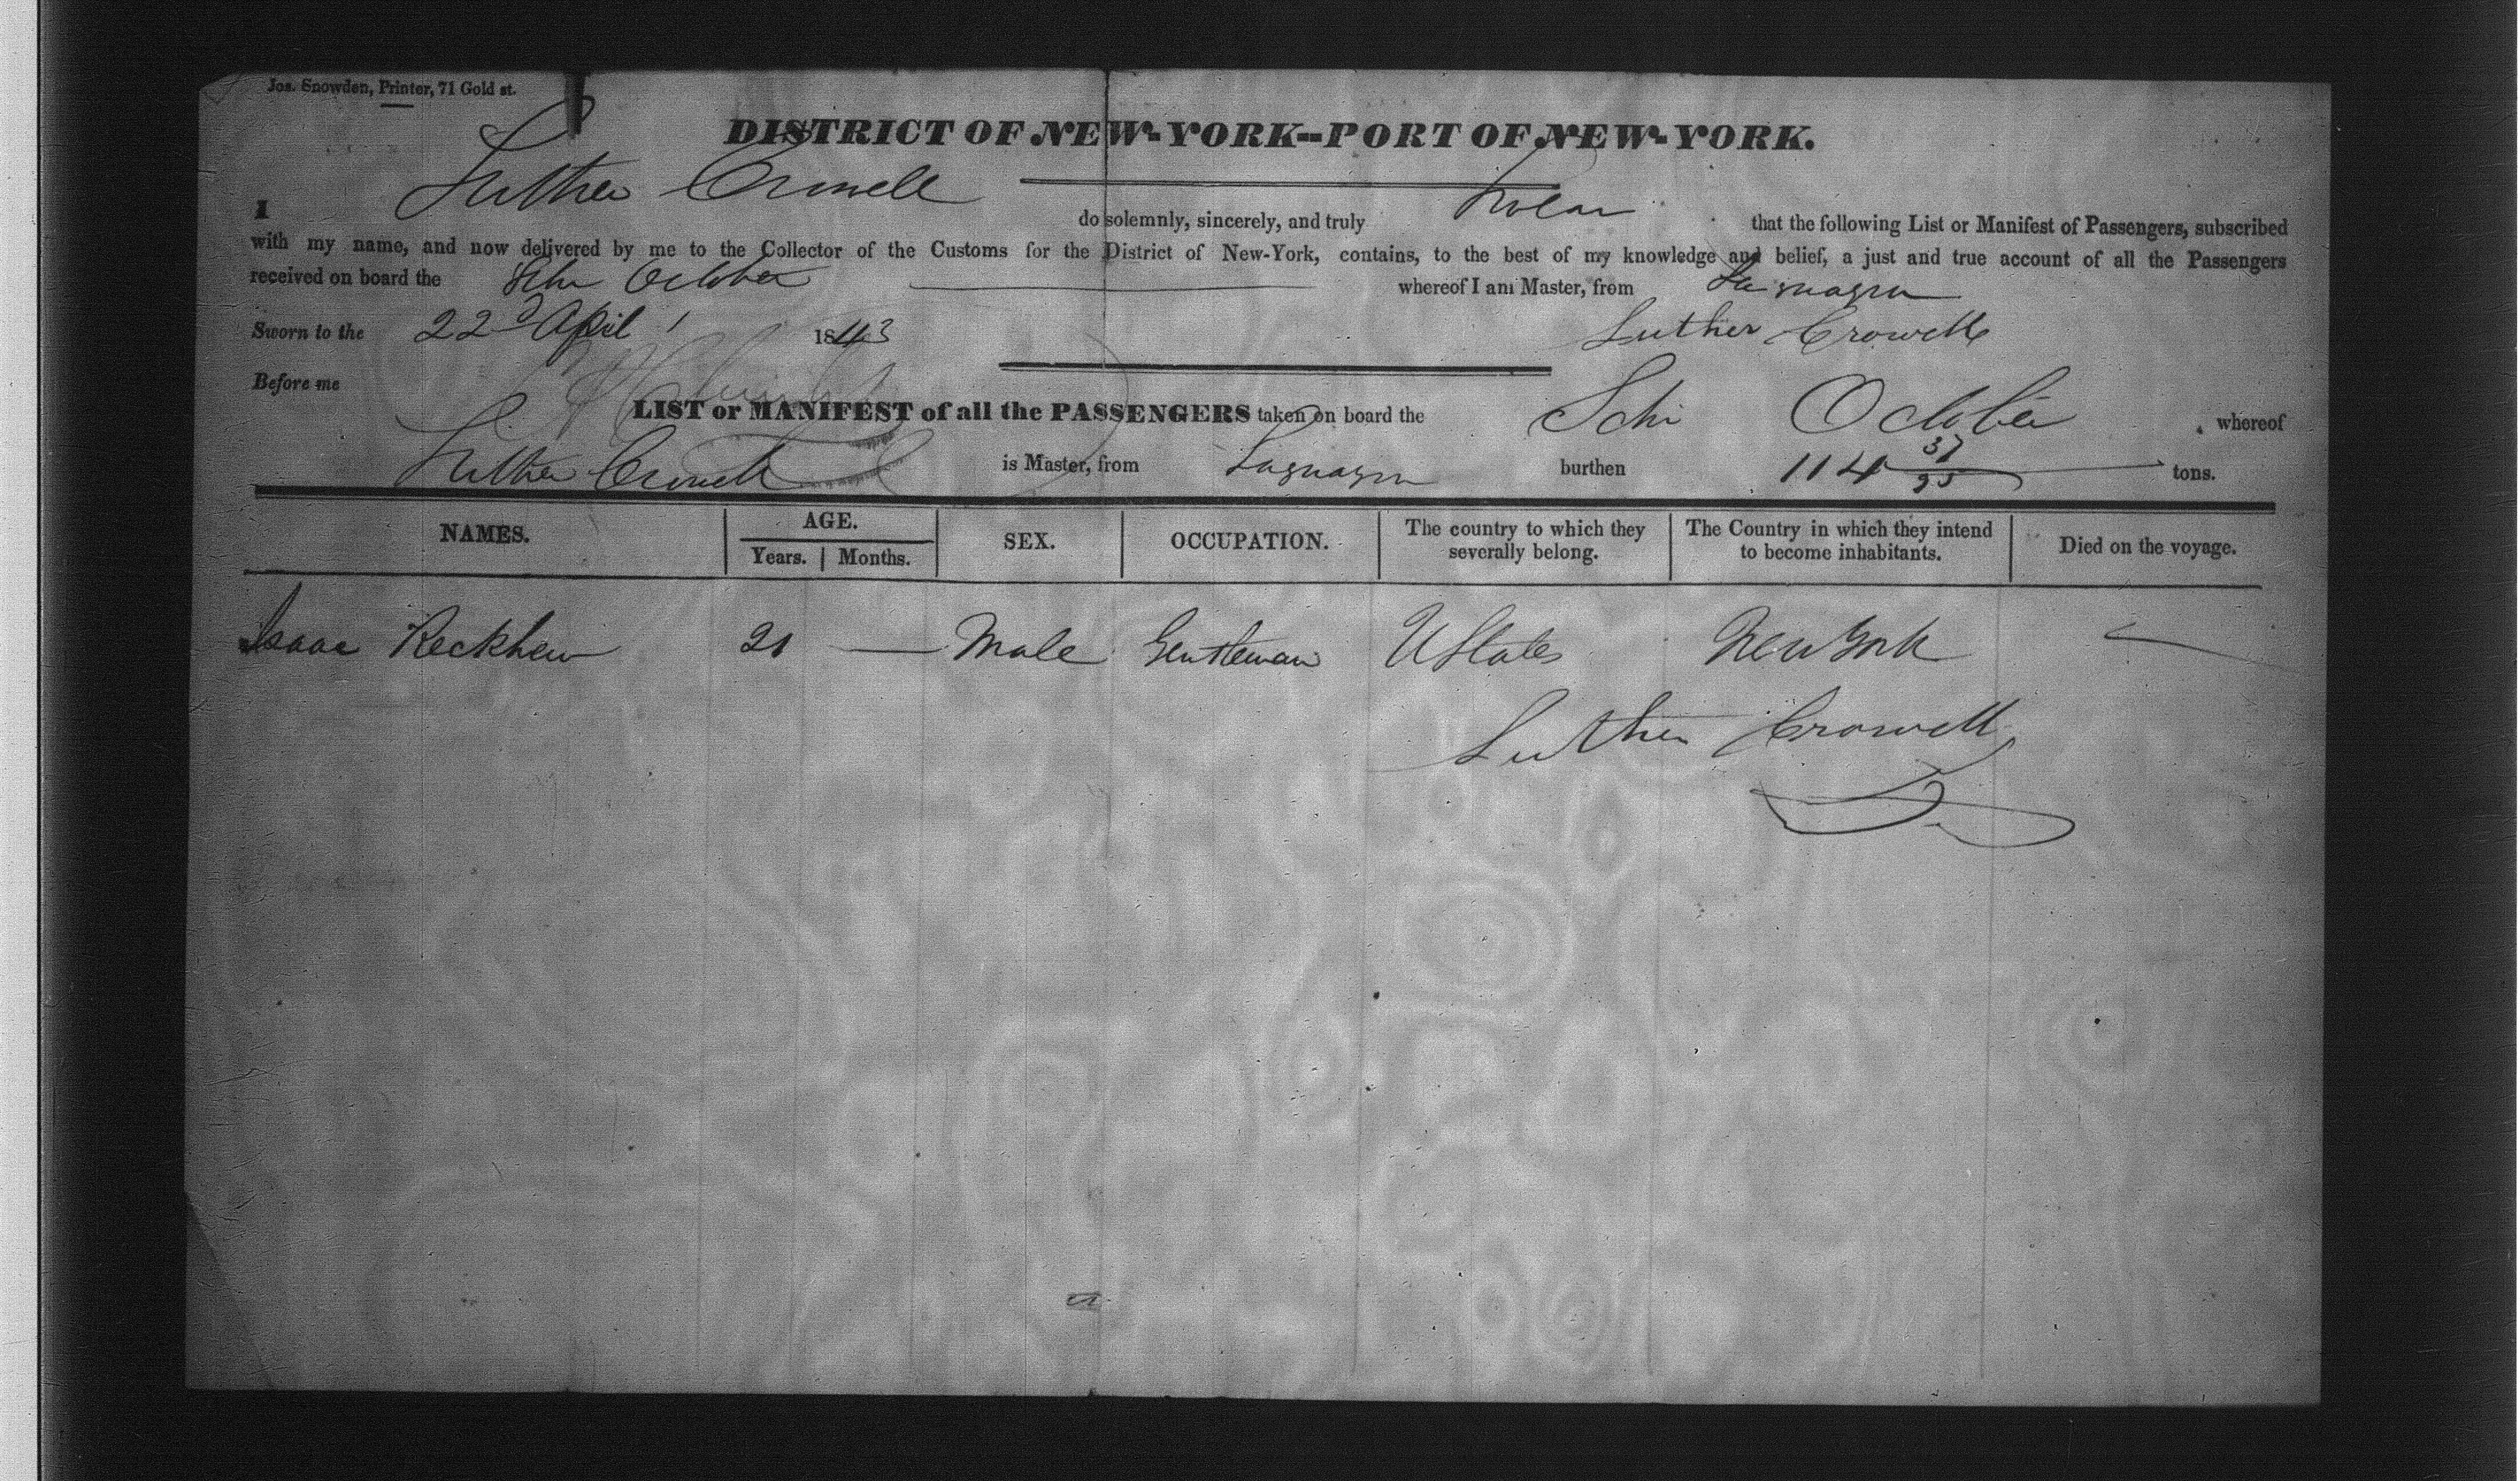 Jos. Snowden, Printer, 71 Gold st.
DISTRICT OF NEW-YORK--PORT OF NEW-YORK.
I Luther Crowell do solemnly, sincerely, and truly swear that the following List or Manifest of Passengers, subscribed
with my name, and now delivered by me to the Collector of the Customs for the District of New-York, contains, to the best of my knowledge and belief, a just and true account of all the Passengers
received on board the Schr October whereof I am Master, from Laguayra
Sworn to the 22d April 1843 Luther Crowell
Before me
LIST or MANIFEST of all the PASSENGERS taken on board the Schr October, whereof
Luther Crowell is Master, from Laguayra burthen 114 37/95 tons.
NAMES. AGE. SEX. OCCUPATION. The country to which they severally belong. The Country in which they intend to become inhabitants. Died on the voyage.
Years. Months.
Isaac Reckhew 21 — Male Gentleman U States New York —
Luther Crowell